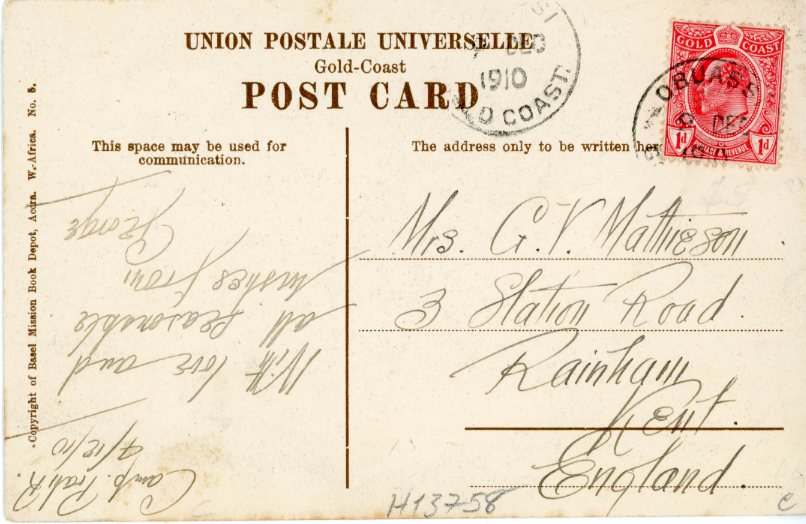 UNION POSTALE UNIVERSELLE
Gold-Coast
POST CARD
DEC
1910
D COAST.
GOLD COAST
1d 1d
OBUASI
DEC
This space may be used for
communication.
The address only to be written her
Camp. Prah R.
4/12/10
With love and
all seasonable
wishes from
George
Mrs. G. V. Mathieson
3 Station Road.
Rainham
Kent.
England.
Copyright of Basel Mission Book Depot, Accra. W. Africa. No. 5.
H13758
c